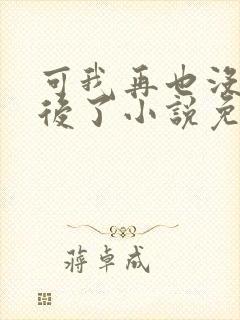 可我再也沒
後了小說免
蔣卓成